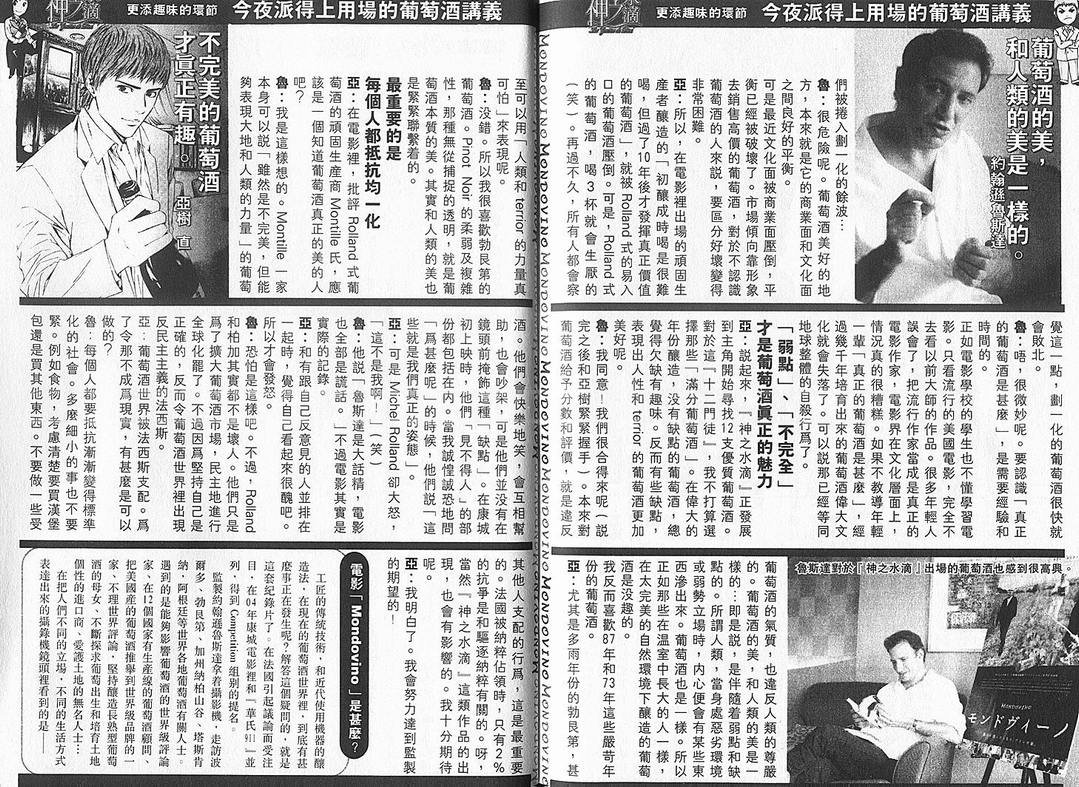 神之滴
更添趣味的環節
今夜派得上用場的葡萄酒講義
葡萄酒的美,
和人類的美是一樣的。
約翰遜魯斯達
們被捲入劃一化的餘波…
魯:很危險呢。葡萄酒美好的地
方,本來就是它的商業面和文化面
之間良好的平衡。
可是最近文化面被商業面壓倒,平
衡已經被破壞了。市場傾向靠形象
去銷售高價的葡萄酒,對於不認識
葡萄酒的人來說,要區分好壞變得
非常困難。
亞:所以,在電影裡出場的頑固生
産者釀造的「初釀成時喝是很難
喝,但過了10年後才發揮真正價值
的葡萄酒」,就被Rolland式的易入
口的葡萄酒壓倒。可是,Rolland式
的葡萄酒,喝3杯就會生厭的
(笑)。再過不久,所有人都會察
覺這一點,劃一化的葡萄酒很快就
會敗北。
魯:唔,很微妙呢。要認識「真正
的葡萄酒是甚麼」,是需要經驗和
時間的。
正如電影學校的學生也不懂學習電
影。只看流行的美國電影,完全不
去看以前大師的作品。很多年輕人
誤會了,把流行作家當成是真正的
電影作家,電影界在文化層面上,
情況真的很糟糕。如果不教導年輕
一輩「真正的葡萄酒是甚麼」,經
過幾千年培育出來的葡萄酒偉大文
化就會失落了。可以說那已經等同
地球整體的自殺行爲了。
「弱點」、「不完全」
才是葡萄酒真正的魅力
亞:説起來,『神之水滴』正發展
到主角開始尋找12支優質葡萄酒。
對於這「十二門徒」,我不打算選
擇那些「滿分葡萄酒」。在偉大的
年份釀造,沒有缺點的葡萄酒,總
覺得欠缺有趣味。反而有些缺點,
表現出人性和terrior的葡萄酒更加
美好呢。
魯:我同意!我們很合得來呢(説
完之後和亞樹緊緊握手)。本來對
葡萄酒給予分數和評價,就是違反
葡萄酒的氣質,也違反人類的尊嚴
的。葡萄酒的美,和人類的美是一
樣的…即是說,是伴隨着弱點和缺
點的。所謂人類,當身處惡劣環境
或弱勢立場時,內心便會有某些東
西滲出來。葡萄酒也是一樣。所以
正如那些在溫室中長大的人一樣,
在太完美的自然環境下釀造的葡萄
酒是沒趣的。
我反而喜歡87年和73年這些嚴苛年
份的葡萄酒。
亞:尤其是多雨年份的勃艮第,甚
魯斯達對於「神之水滴」出場的葡萄酒也感到很高興。
MONDOVINO
モンドヴィーノ
神之滴
更添趣味的環節
今夜派得上用場的葡萄酒講義
不完美的葡萄酒
才真正有趣。
亞樹 直
至可以用「人類和terrior的力量真
可怕」來表現呢。
魯:沒錯。所以我很喜歡勃艮第的
葡萄酒。Pinot Noir的柔弱及複雜
性,那種無從捕捉的透明,就是葡
萄酒本質的美。其實和人類的美也
是緊緊聯繫着的。
最重要的是
每個人都抵抗均一化
亞:在電影裡,批評Rolland式葡
萄酒的頑固生産商Montille氏,應
該是一個知道葡萄酒真正的美的人
吧?
魯:我是這樣想的。Montille一家
本身可以説「雖然是不完美,但能
夠表現大地和人類的力量」的葡萄
酒。他們會快樂地笑,會互相幫
助,也會吵架,可是他們並沒有在
鏡頭前掩飾這種「缺點」。在康城
初上映時,他們「見不得人」的部
份都包括在內。當我誠惶誠恐地問
「爲甚麼呢」的時候,他們說「這
些就是我們真正的姿態」。
亞:可是Michel Rolland卻大怒,
「這不是我啊!」(笑)
魯:他說「魯斯達是大話精,電影
也全部是謊話。」不過電影其實是
實際的記錄。
亞:和有跟自己反意見的人並排在
一起時,覺得自己看起來很醜吧。
所以才會發怒。
魯:恐怕是這樣吧。不過,Rolland
和柏加其實都不是壞人。他們只是
爲了擴大葡萄酒市場,民主地進行
全球化罷了。不過因爲堅持自己是
正確的,反而令葡萄酒世界裡出現
反民主主義的法西斯。
亞:葡萄酒世界被法西斯支配。爲
了令那不成爲現實,有甚麼是可以
做的?
魯:每個人都要抵抗漸漸變得標準
化的社會。多麼細小的事也不要
緊。例如食物,考慮清楚要買漢堡
包還是買其他東西。不要做一些受
其他人支配的行爲,這是最重要
的。法國被納粹佔領時,只有2%
的抗爭是和驅逐納粹有關的。呀,
當然『神之水滴』這類作品的出
現,也會有影響的。我十分期待
呢。
亞:我明白了。我會努力達到監製
的期望的!
電影「Mondovino」是甚麼?
工匠的傳統技術,和近代使用機器的釀
造法,在現在的葡萄酒世界裡,到底有甚
麼事正在發生呢?解答這個疑問的,就是
這套紀錄片了。在法國引起議論而受注
目,在04年康城電影裡和「華氏911」並
列,得到Competition組別的提名。
監製約翰遜魯斯達拿着攝影機,走訪波
爾多、勃艮第、加州納柏山谷、塔斯肯
納,阿根廷等世界各地葡萄酒有關人士。
遇到的是能夠影響葡萄酒的世界級評論
家、在12個國家有生産線的葡萄酒顧問、
把美國産的葡萄酒推舉到世界級品牌的一
家、不理世界評論,堅持釀造長熟型葡萄
酒的母女、不斷探求葡萄出生和培育土地
個性的進口商、愛護土地的無名人士…
在把人們不同的立場,不同的生活方式
表達出來的攝錄機鏡頭裡看到的是——
MONDOVINO MONDOVINO MONDOVINO MONDOVINO MONDOVINO MONDOVINO